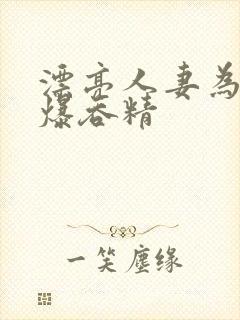 漂亮人妻為
爆吞精
一笑塵缘